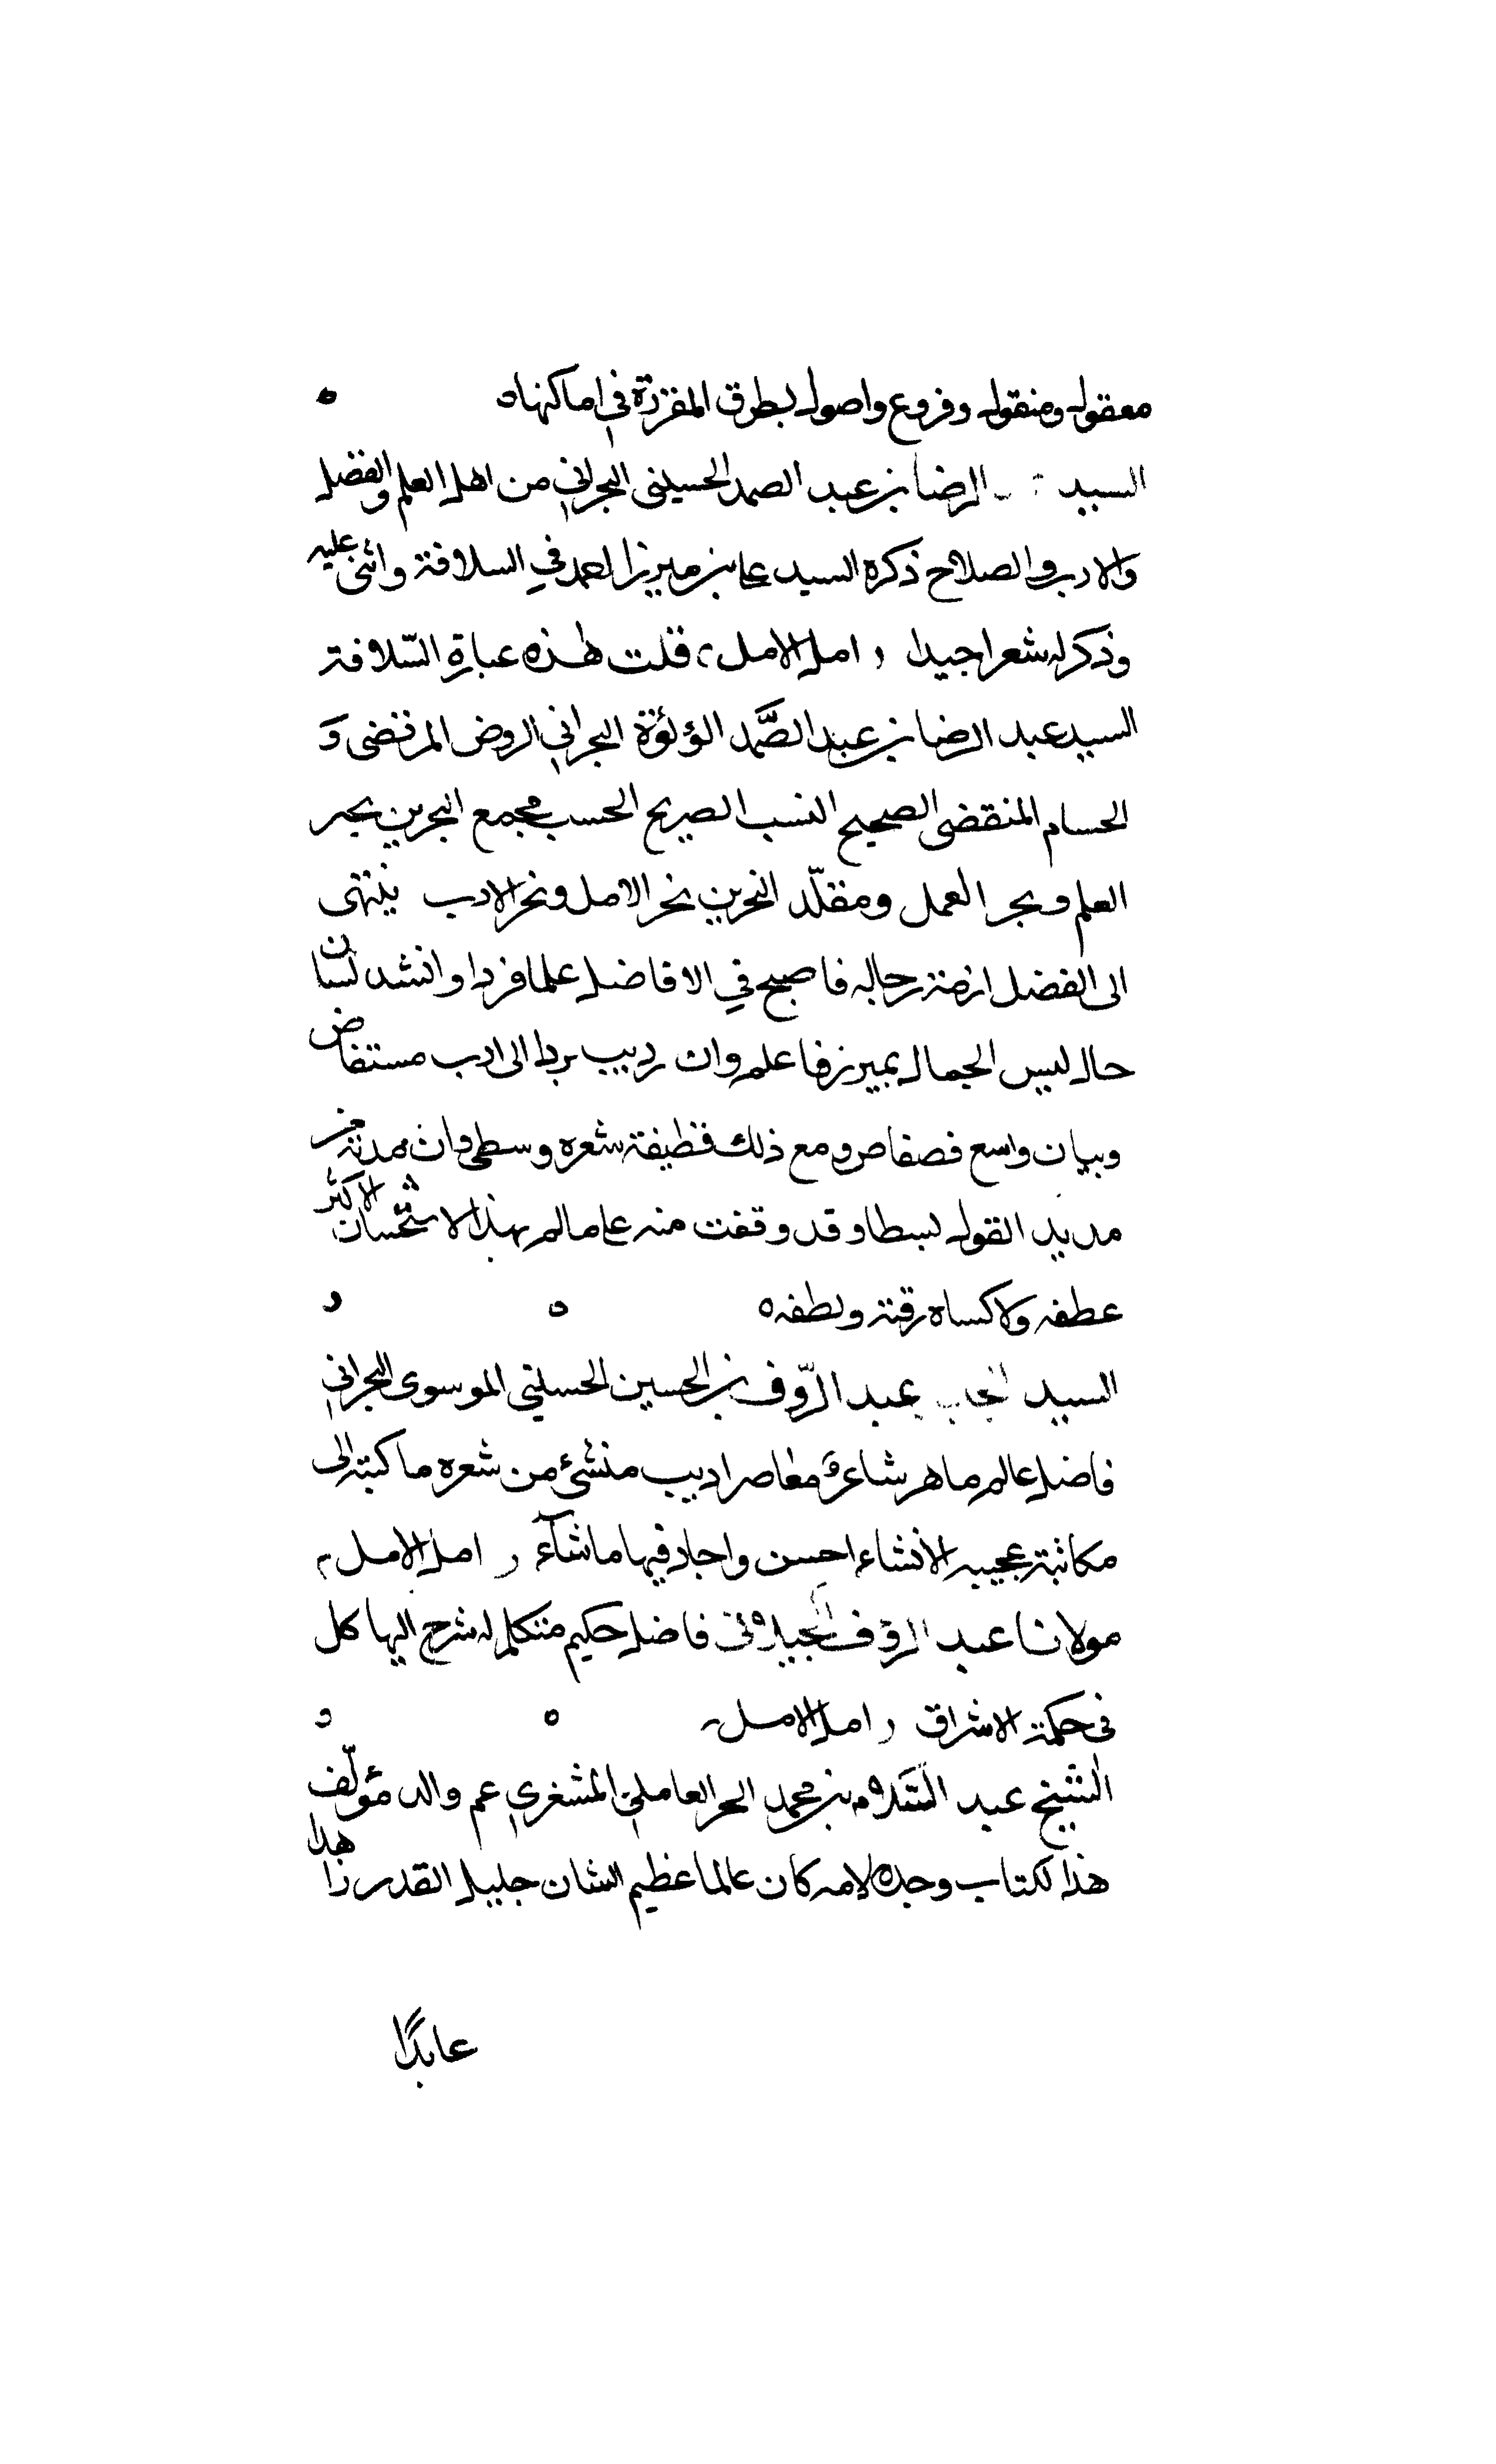 معقول ومنقول وفروع واصول بطرق المقررة في اماكنها ه
السيد الرضا بن عبد الصمد الحسيني البحراني من اهل العلم والفضل
والادب والصلاح ذكره السيد علي بن ميرزا احمد في السلافة واثنى عليه
وذكر له شعرا جيدا امل الامل قلت هذه عبارة السّلافة
السيد عبد الرضا بن عبد الصَّمد الؤلؤة البحراني الروض المرتضى وَ
الحسام المنتضى الصحيح النسب الصريح الحسب مجمع البحرين بحر
العلم وبحر العمل ومقلّد النحرين نحر الامل ونحر الادب ينتهى
الى الفضل ازمة رحاله فاصبح في الافاضل علما فردا وانشد لسان
حال ليس الجمال بميرز فاعلم وان رديب بردا الى ادب مستفاض
وبيان واسع فصفاض ومع ذلك فطيفة شعره وسطى وان مدته
مديد القول بسطا وقد وقفت منه على مالم يهذ الاستحسان الاكثر
عطفه ولا كساه رقته ولطفه ه
السيد عبد الرّوف بن الحسين الحسيني الموسوى البحراني
فاضل عالم ماهر شاعر معاصر اديب منشئ من شعره ما كتبة الى
مكاتبة عجيبه الأنشاء احسن واجاد فيها ما شآء امل الامل
مولانا عبد الرؤف الجيلاني فاضل حكيم متكلم له شرح الهياكل
فى حكمة الاشراق امل الامل
الشيخ عبد السّلام بن محمد الحر العاملي المشغرى عم والد مؤلّف
هذا لكتاب وجده لامه كان عالما عظيم الشان جليل القدر زاهدا
عابدًا